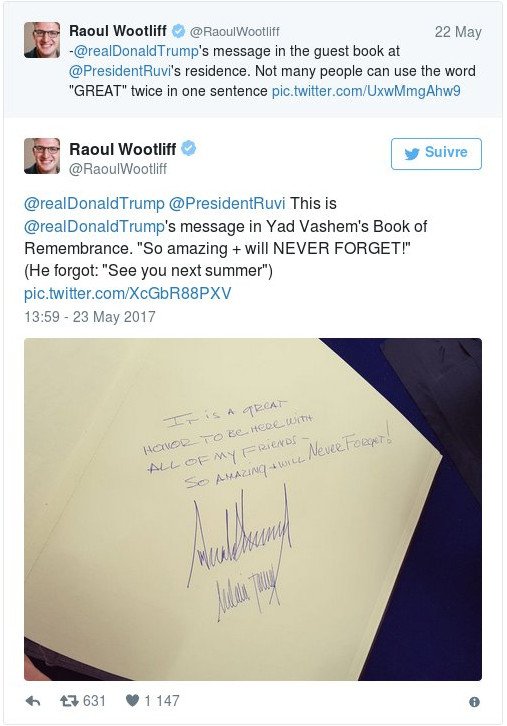 Raoul Wootliff @RaoulWootliff 22 May
-@realDonaldTrump's message in the guest book at
@PresidentRuvi's residence. Not many people can use the word
"GREAT" twice in one sentence pic.twitter.com/UxwMmgAhw9
Raoul Wootliff
@RaoulWootliff
Suivre
@realDonaldTrump @PresidentRuvi This is
@realDonaldTrump's message in Yad Vashem's Book of
Remembrance. "So amazing + will NEVER FORGET!"
(He forgot: "See you next summer")
pic.twitter.com/XcGbR88PXV
13:59 - 23 May 2017
IT IS A GREAT
HONOR TO BE HERE WITH
ALL OF MY FRIENDS -
SO AMAZING + WILL NEVER FORGET!
631 1 147